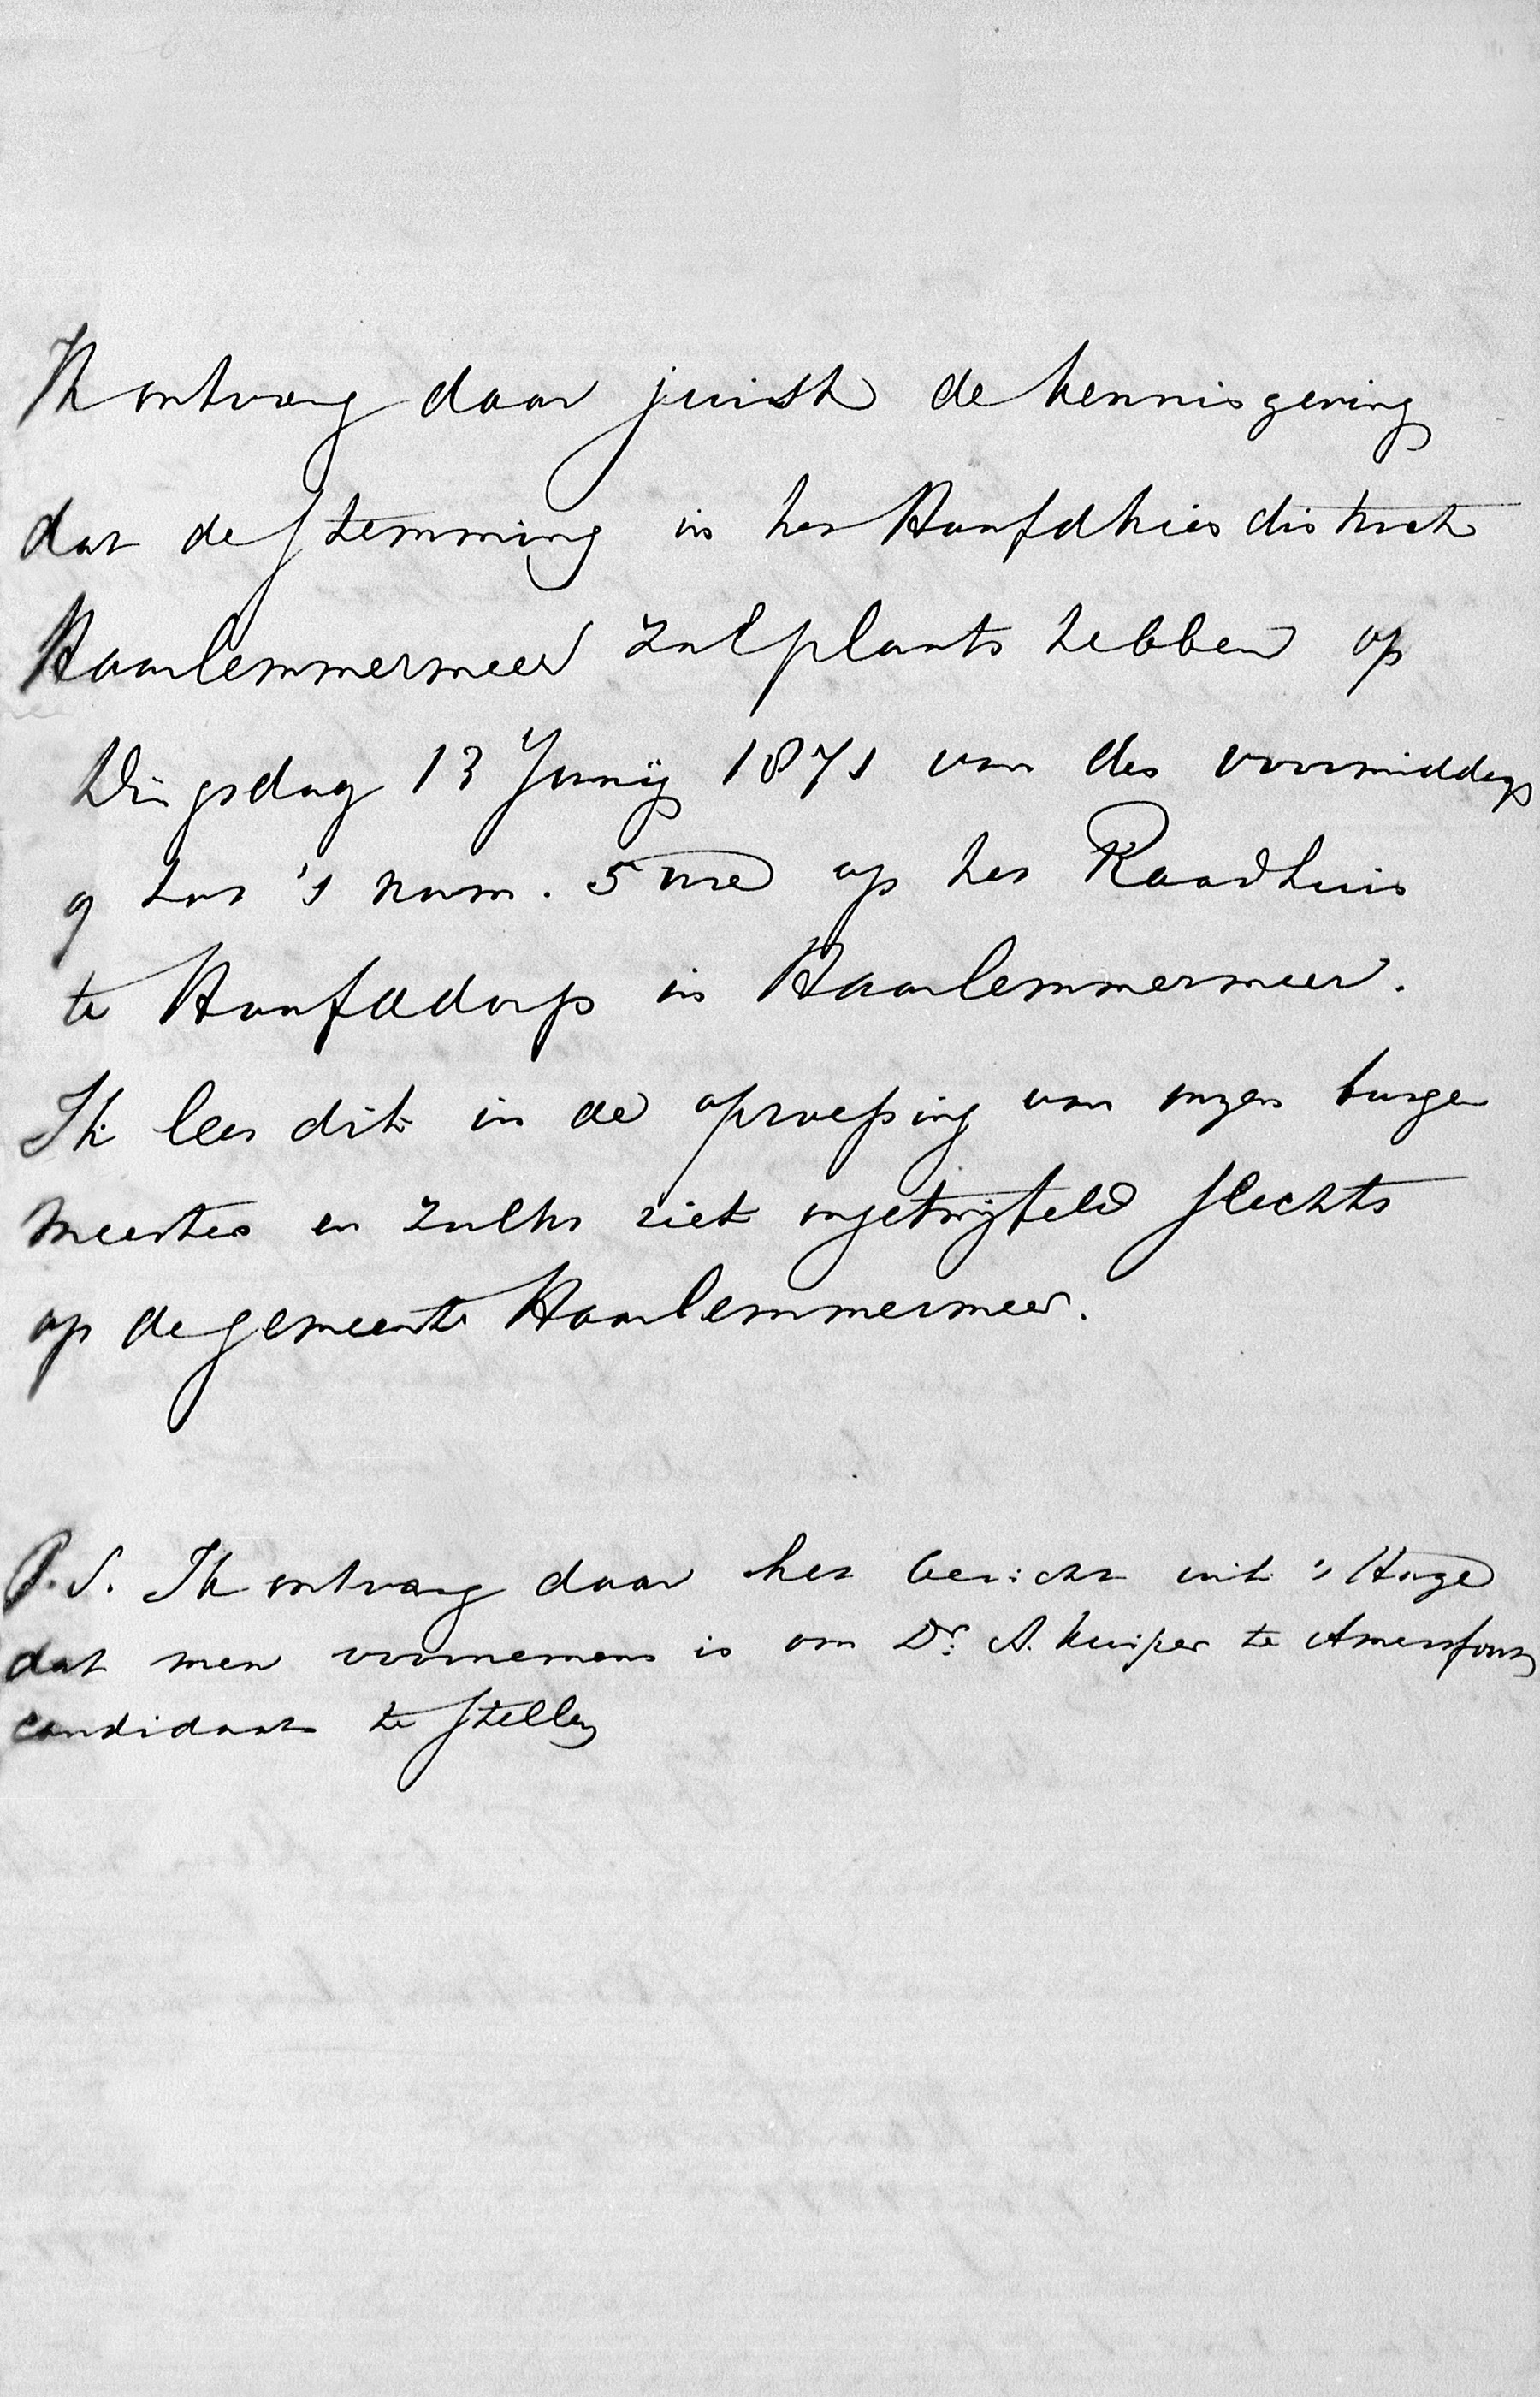 Ik ontvang daar juist de kennisgeving
dat de stemming in het Hoofdkiesdistrict
Haarlemmermeer zal plaats hebben op
Dingsdag 13 Junij 1871 van des voormiddags
9 tot 's nam. 5 ure op het Raadhuis
te Hoofddorp in Haarlemmermeer.
Ik lees dit in de oproeping van onzen burge
meester en zulks ziet ongetwijfeld slechts
op de gemeente Haarlemmermeer.
P.S. Ik ontvang daar het bericht uit 's Hage
dat men voornemens is om Dr. A. Kuiper te Amersfoort
candidaat te stellen